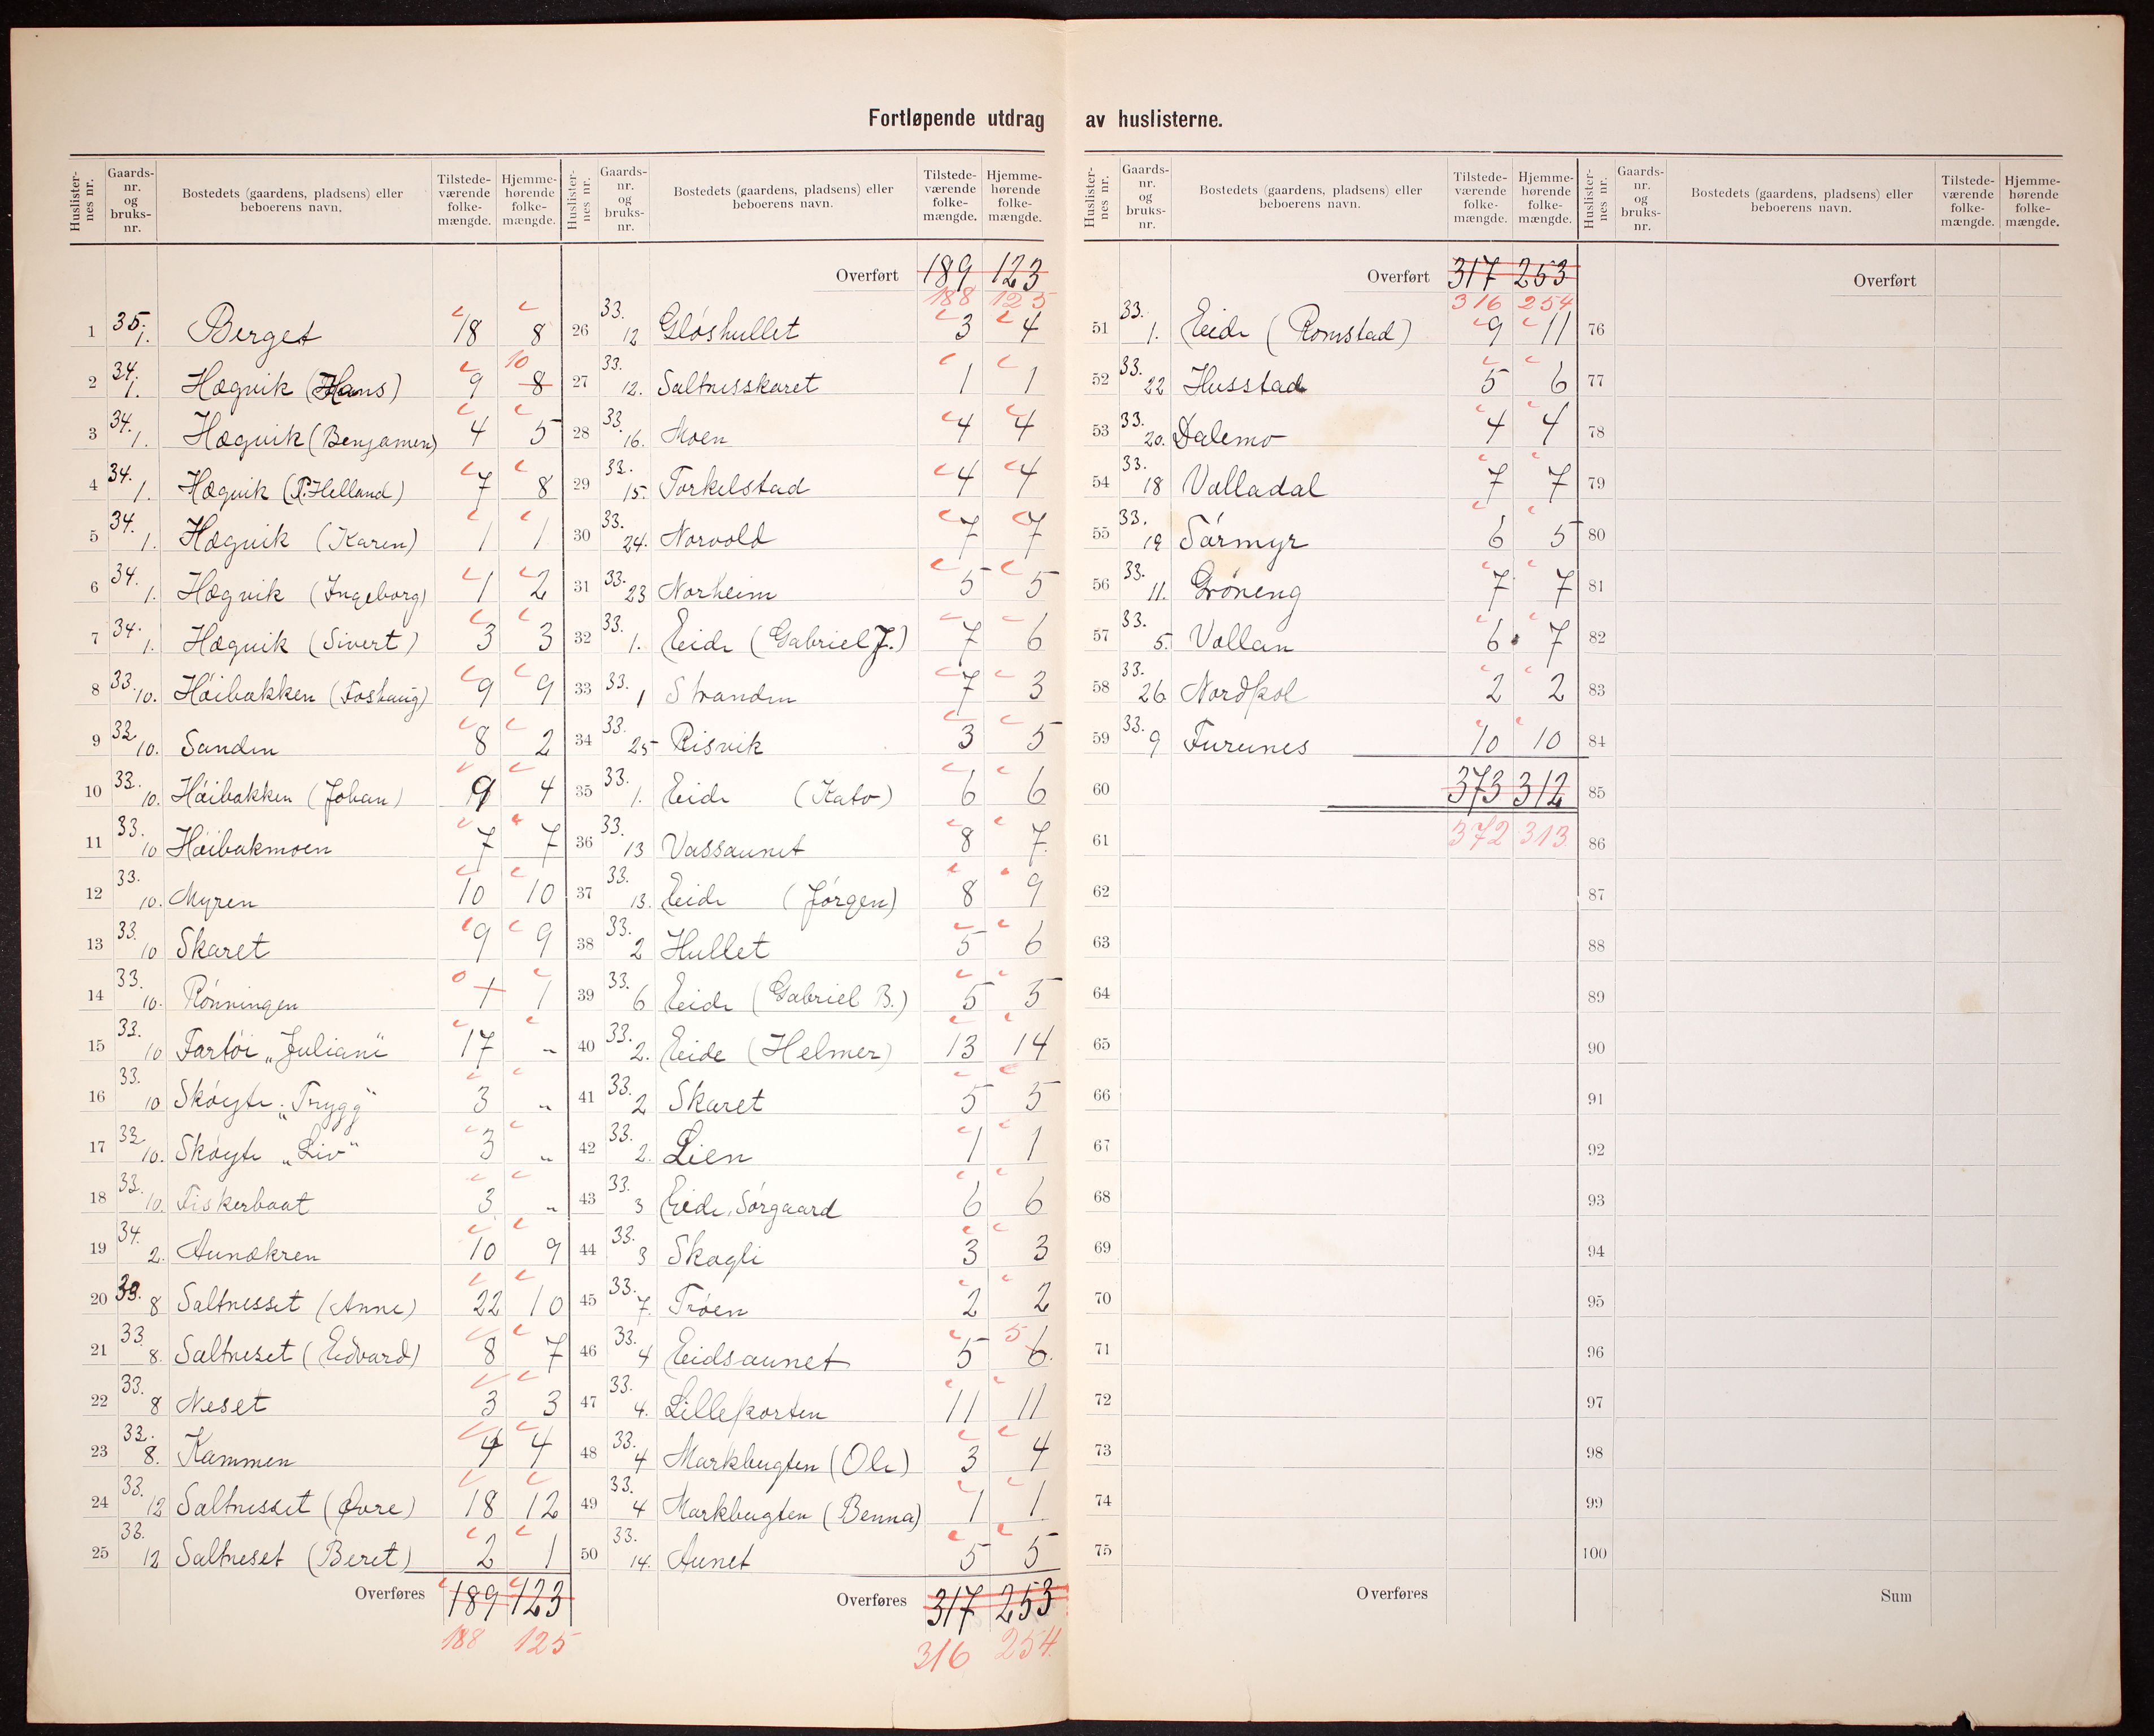 Fortløpende utdrag av huslisterne.
Huslister-nes nr. Gaards-nr. og bruks-nr. Bostedets (gaardens, pladsens) eller beboerens navn. Tilstede-værende folke-mængde. Hjemme-hørende folke-mængde.
1 35. 1. Berget 18 8
2 34. 1. Hægvik (Hans) 9 8 10
3 34. 1. Hægvik (Benjamen) 4 5
4 34. 1. Hægvik (P. Helland) 7 8
5 34. 1. Hægvik (Karen) 1 1
6 34. 1. Hægvik (Ingeborg) 1 2
7 34. 1. Hægvik (Sivert) 3 3
8 33. 10. Høibakken (Foshaug) 9 9
9 33. 10. Sanden 8 2
10 33. 10. Høibakken (Johan) 9 4
11 33. 10 Høibakmoen 7 7
12 33. 10. Myren 10 10
13 33. 10 Skaret 9 9
14 33. 10. Rönningen 1 0 1
15 33. 10 Fartöi „Juliane" 17 „
16 33. 10 Sköyte „Trygg" 3 „
17 33. 10. Sköyte „Liv" 3 „
18 33. 10. Fiskerbaat 3 „
19 34. 2. Aunækren 10 9
20 33. 8 Saltnesset (Anne) 22 10
21 33. 8. Saltneset (Edvard) 8 7
22 33. 8 Neset 3 3
23 33. 8. Kammen 4 4
24 33. 12 Saltnesset (Øvre) 18 12
25 33. 12 Saltneset (Beret) 2 1
Overføres 189 123
188 125
Huslister-nes nr. Gaards-nr. og bruks-nr. Bostedets (gaardens, pladsens) eller beboerens navn. Tilstede-værende folke-mængde. Hjemme-hørende folke-mængde.
Overført 189 123
188 125
26 33. 12 Glöshullet 3 4
27 33. 12. Saltnesskaret 1 1
28 33. 16. Moen 4 4
29 33. 15. Torkelstad 4 4
30 33. 24. Norvold 7 7
31 33. 23 Norheim 5 5
32 33. 1. Eide (Gabriel J.) 7 6
33 33. 1 Stranden 7 3
34 33. 25 Risvik 3 5
35 33. 1. Eide (Kato) 6 6
36 33. 13 Vassaunet 8 7
37 33. 13. Eide (Jörgen) 8 9
38 33. 2 Hullet 5 6
39 33. 6 Eide (Gabriel B.) 5 5
40 33. 2. Eide (Helmer) 13 14
41 33. 2 Skaret 5 5
42 33. 2. Lien 1 1
43 33. 3 Eide, Sörgaard 6 6
44 33. 3 Skogli 3 3
45 33. 7. Tröen 2 2
46 33. 4 Eidsaunet 5 6. 5
47 33. 4. Lillekorten 11 11
48 33. 4 Markbugten (Ole) 3 4
49 33. 4 Markbugten (Benna) 1 1
50 33. 14. Aunet 5 5
Overføres 317 253
316 254.
Huslister-nes nr. Gaards-nr. og bruks-nr. Bostedets (gaardens, pladsens) eller beboerens navn. Tilstede-værende folke-mængde. Hjemme-hørende folke-mængde.
Overført 317 253
316 254
51 33. 1. Eide (Romstad) 9 11
52 33. 22 Husstad 5 6
53 33. 20. Dalemo 4 4
54 33. 18 Valladal 7 7
55 33. 19 Sörmyr 6 5
56 33. 11. Gröneng 7 7
57 33. 5. Vollan 6 7
58 33. 26 Nordkol 2 2
59 33. 9 Furunes 10 10
60 373 312
61 372 313
62
63
64
65
66
67
68
69
70
71
72
73
74
75
Overføres
Huslister-nes nr. Gaards-nr. og bruks-nr. Bostedets (gaardens, pladsens) eller beboerens navn. Tilstede-værende folke-mængde. Hjemme-hørende folke-mængde.
Overført
76
77
78
79
80
81
82
83
84
85
86
87
88
89
90
91
92
93
94
95
96
97
98
99
100
Sum